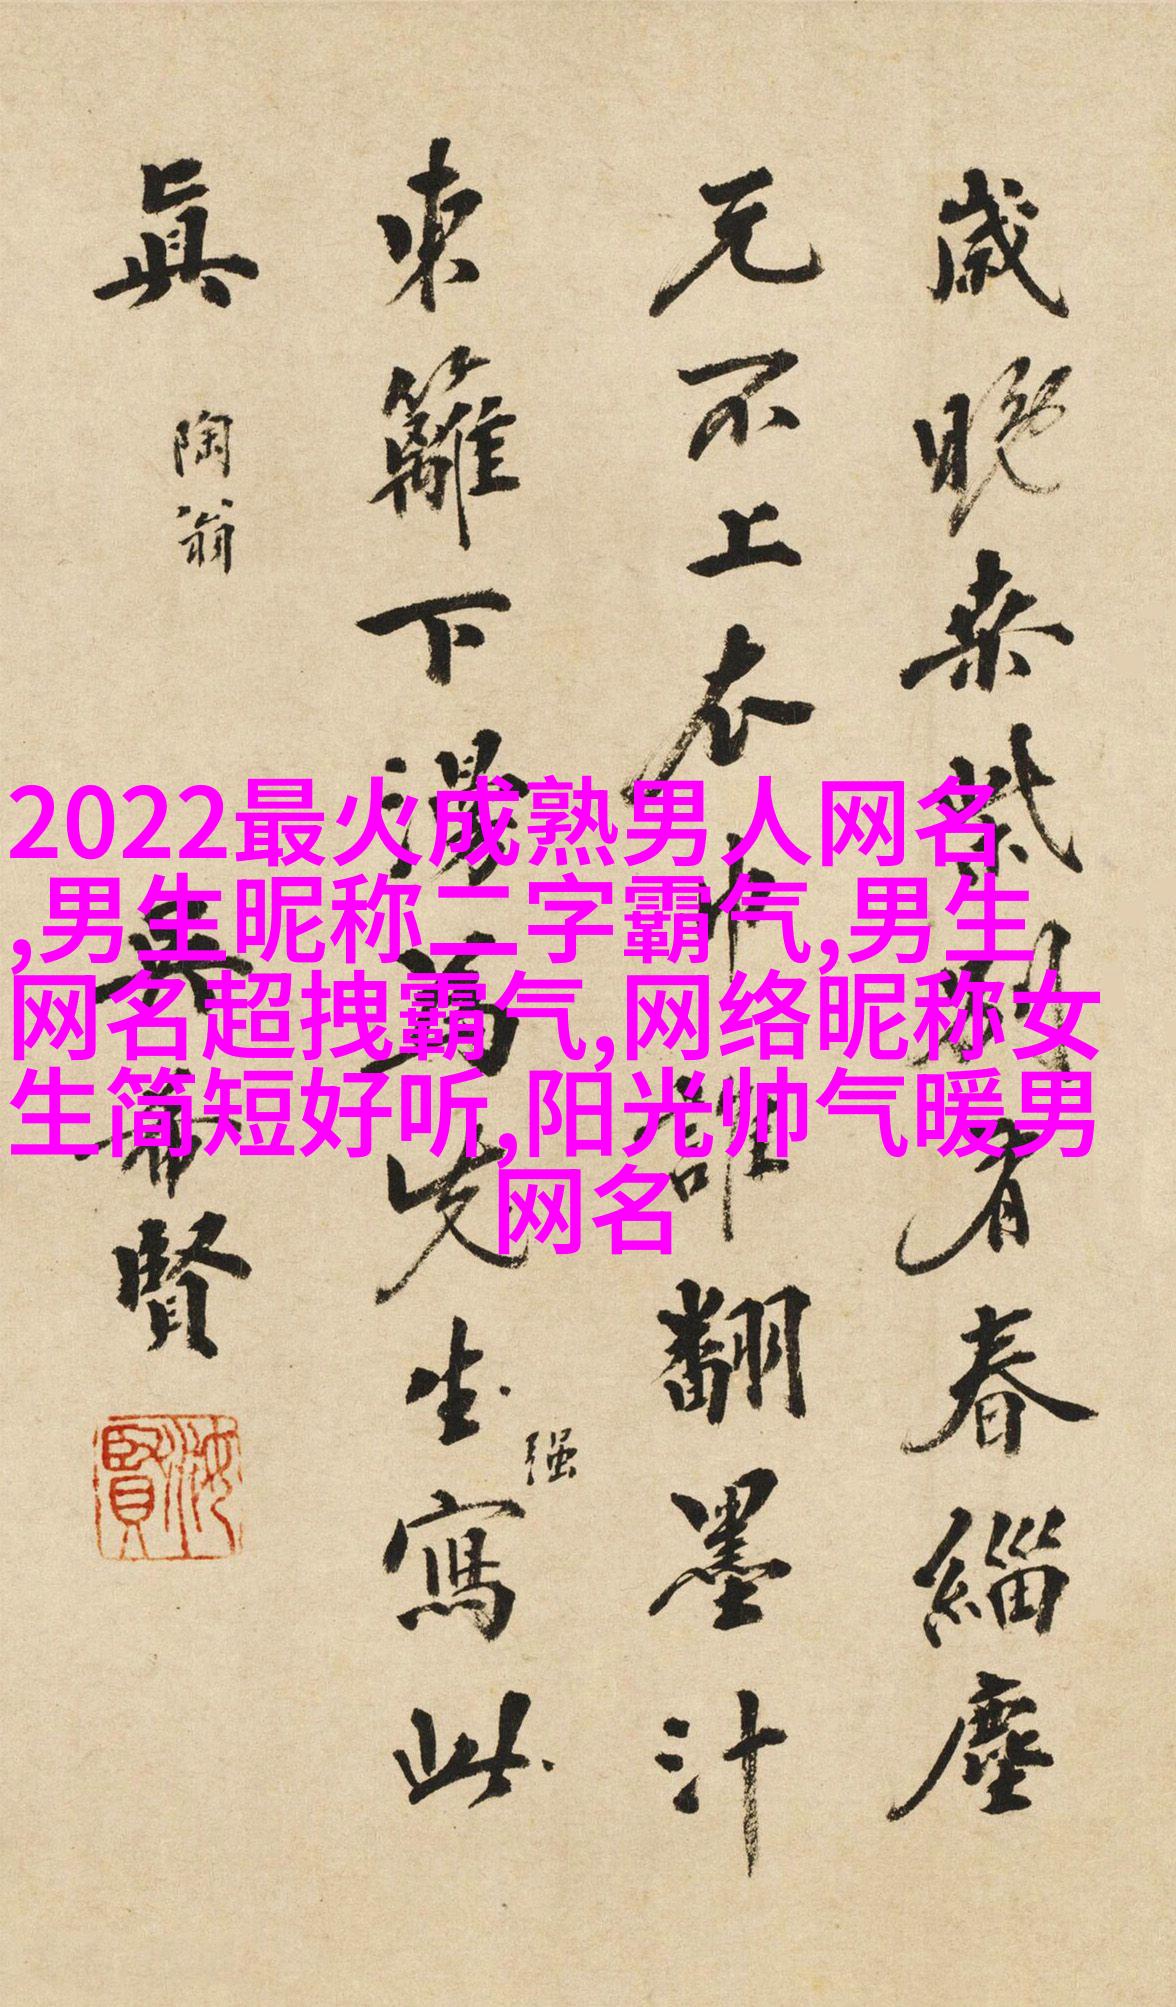 歲晚桒柴別有春緇塵
元不上衣巾誰翻墨汁
東籬下漫為先生寫此
强
眞
陶翁
吳希賢
汝賢
2022最火成熟男人网名
,男生昵称二字霸气,男生
网名超拽霸气,网络昵称女
生简短好听,阳光帅气暖男
网名